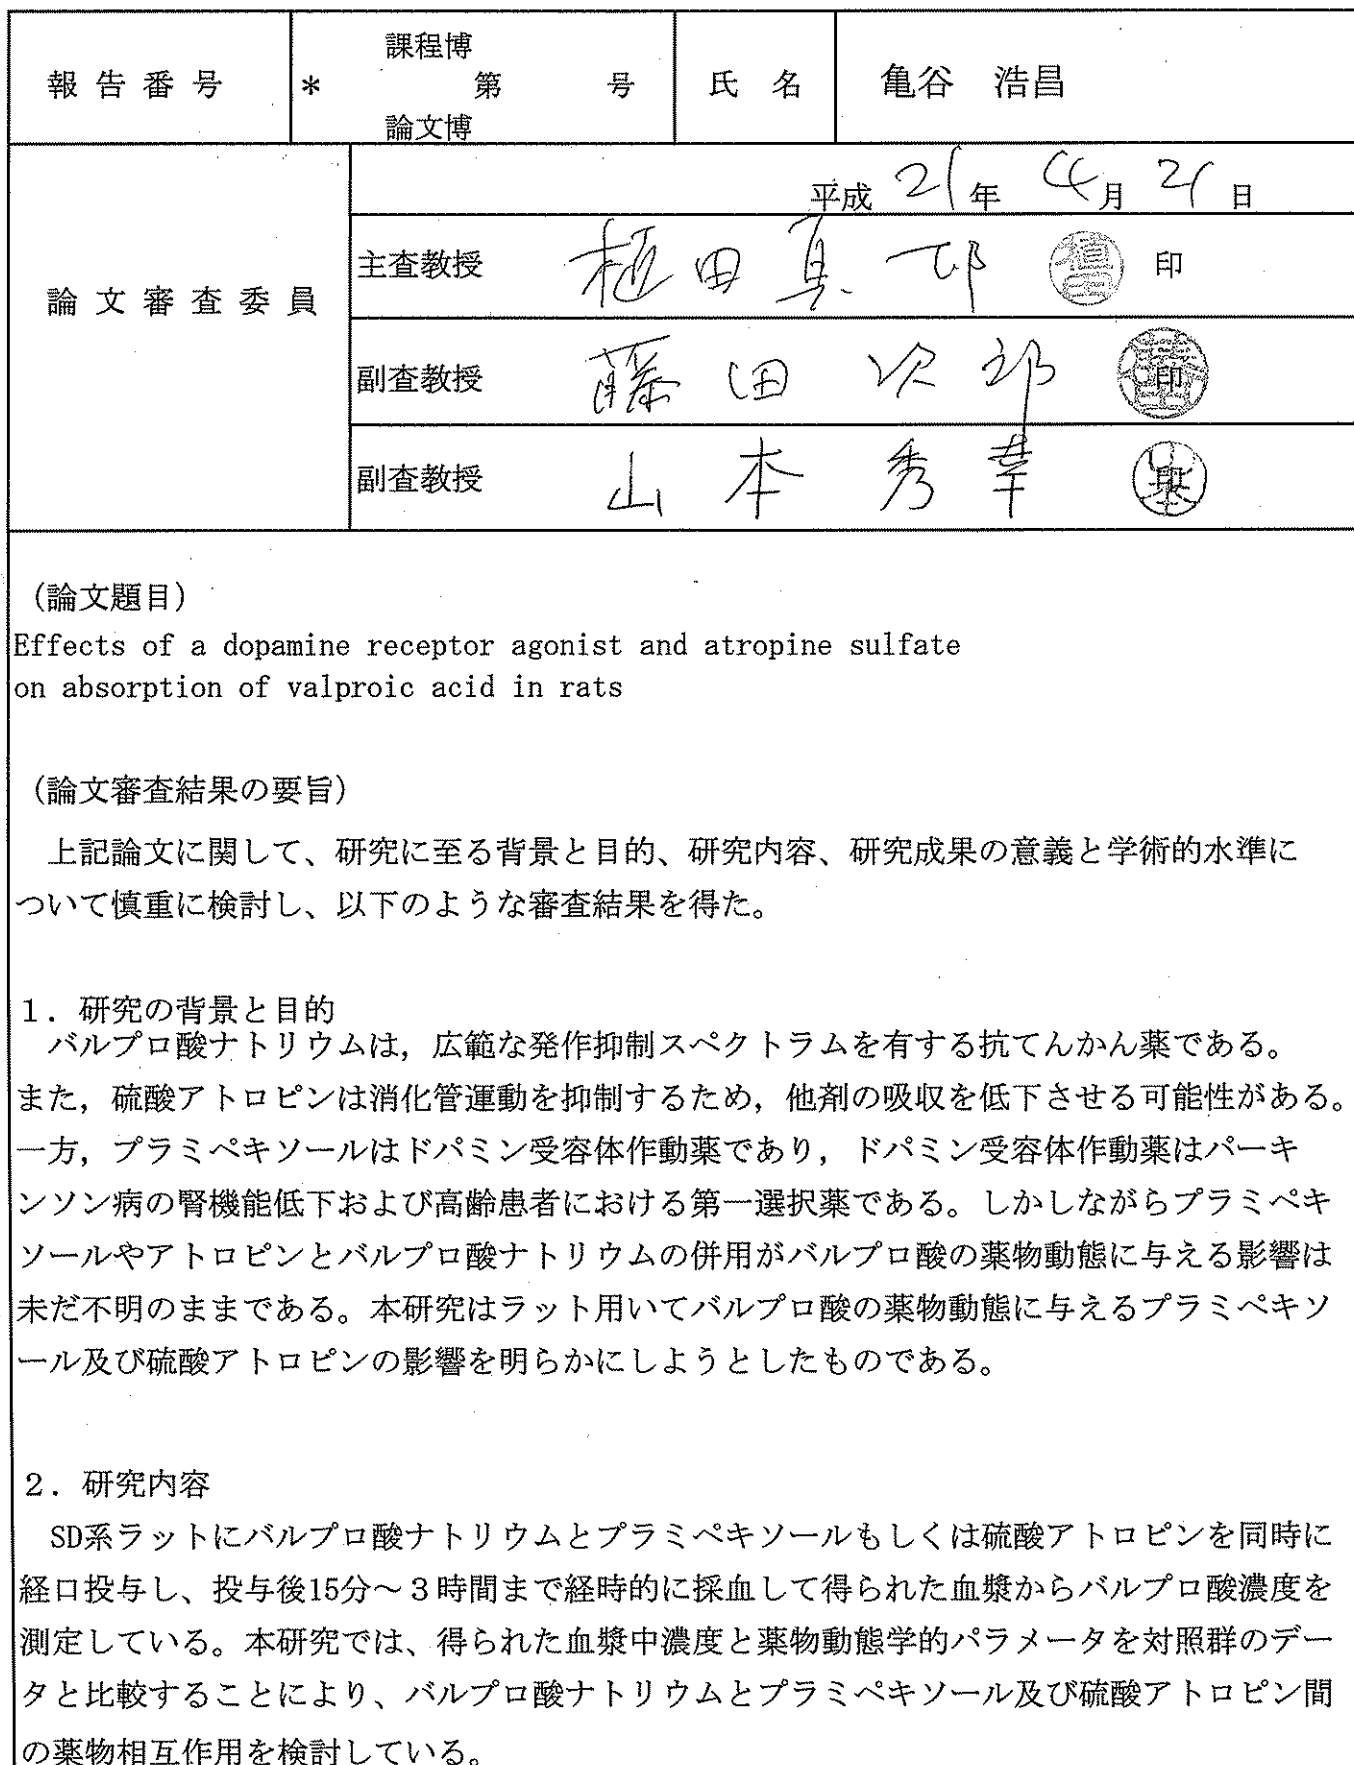 課程博
報告番号 * 第 号 氏名 亀谷 浩昌
論文博
平成 21年 4月 21日
論文審査委員
主査教授 植田真一郎 印
副査教授 藤田次郎 印
副査教授 山本秀幸
(論文題目)
Effects of a dopamine receptor agonist and atropine sulfate
on absorption of valproic acid in rats
(論文審査結果の要旨)
上記論文に関して、研究に至る背景と目的、研究内容、研究成果の意義と学術的水準に
ついて慎重に検討し、以下のような審査結果を得た。
1．研究の背景と目的
バルプロ酸ナトリウムは，広範な発作抑制スペクトラムを有する抗てんかん薬である。
また，硫酸アトロピンは消化管運動を抑制するため，他剤の吸収を低下させる可能性がある。
一方，プラミペキソールはドパミン受容体作動薬であり，ドパミン受容体作動薬はパーキ
ンソン病の腎機能低下および高齢患者における第一選択薬である。しかしながらプラミペキ
ソールやアトロピンとバルプロ酸ナトリウムの併用がバルプロ酸の薬物動態に与える影響は
未だ不明のままである。本研究はラット用いてバルプロ酸の薬物動態に与えるプラミペキソ
ール及び硫酸アトロピンの影響を明らかにしようとしたものである。
2．研究内容
SD系ラットにバルプロ酸ナトリウムとプラミペキソールもしくは硫酸アトロピンを同時に
経口投与し、投与後15分～３時間まで経時的に採血して得られた血漿からバルプロ酸濃度を
測定している。本研究では、得られた血漿中濃度と薬物動態学的パラメータを対照群のデー
タと比較することにより、バルプロ酸ナトリウムとプラミペキソール及び硫酸アトロピン間
の薬物相互作用を検討している。